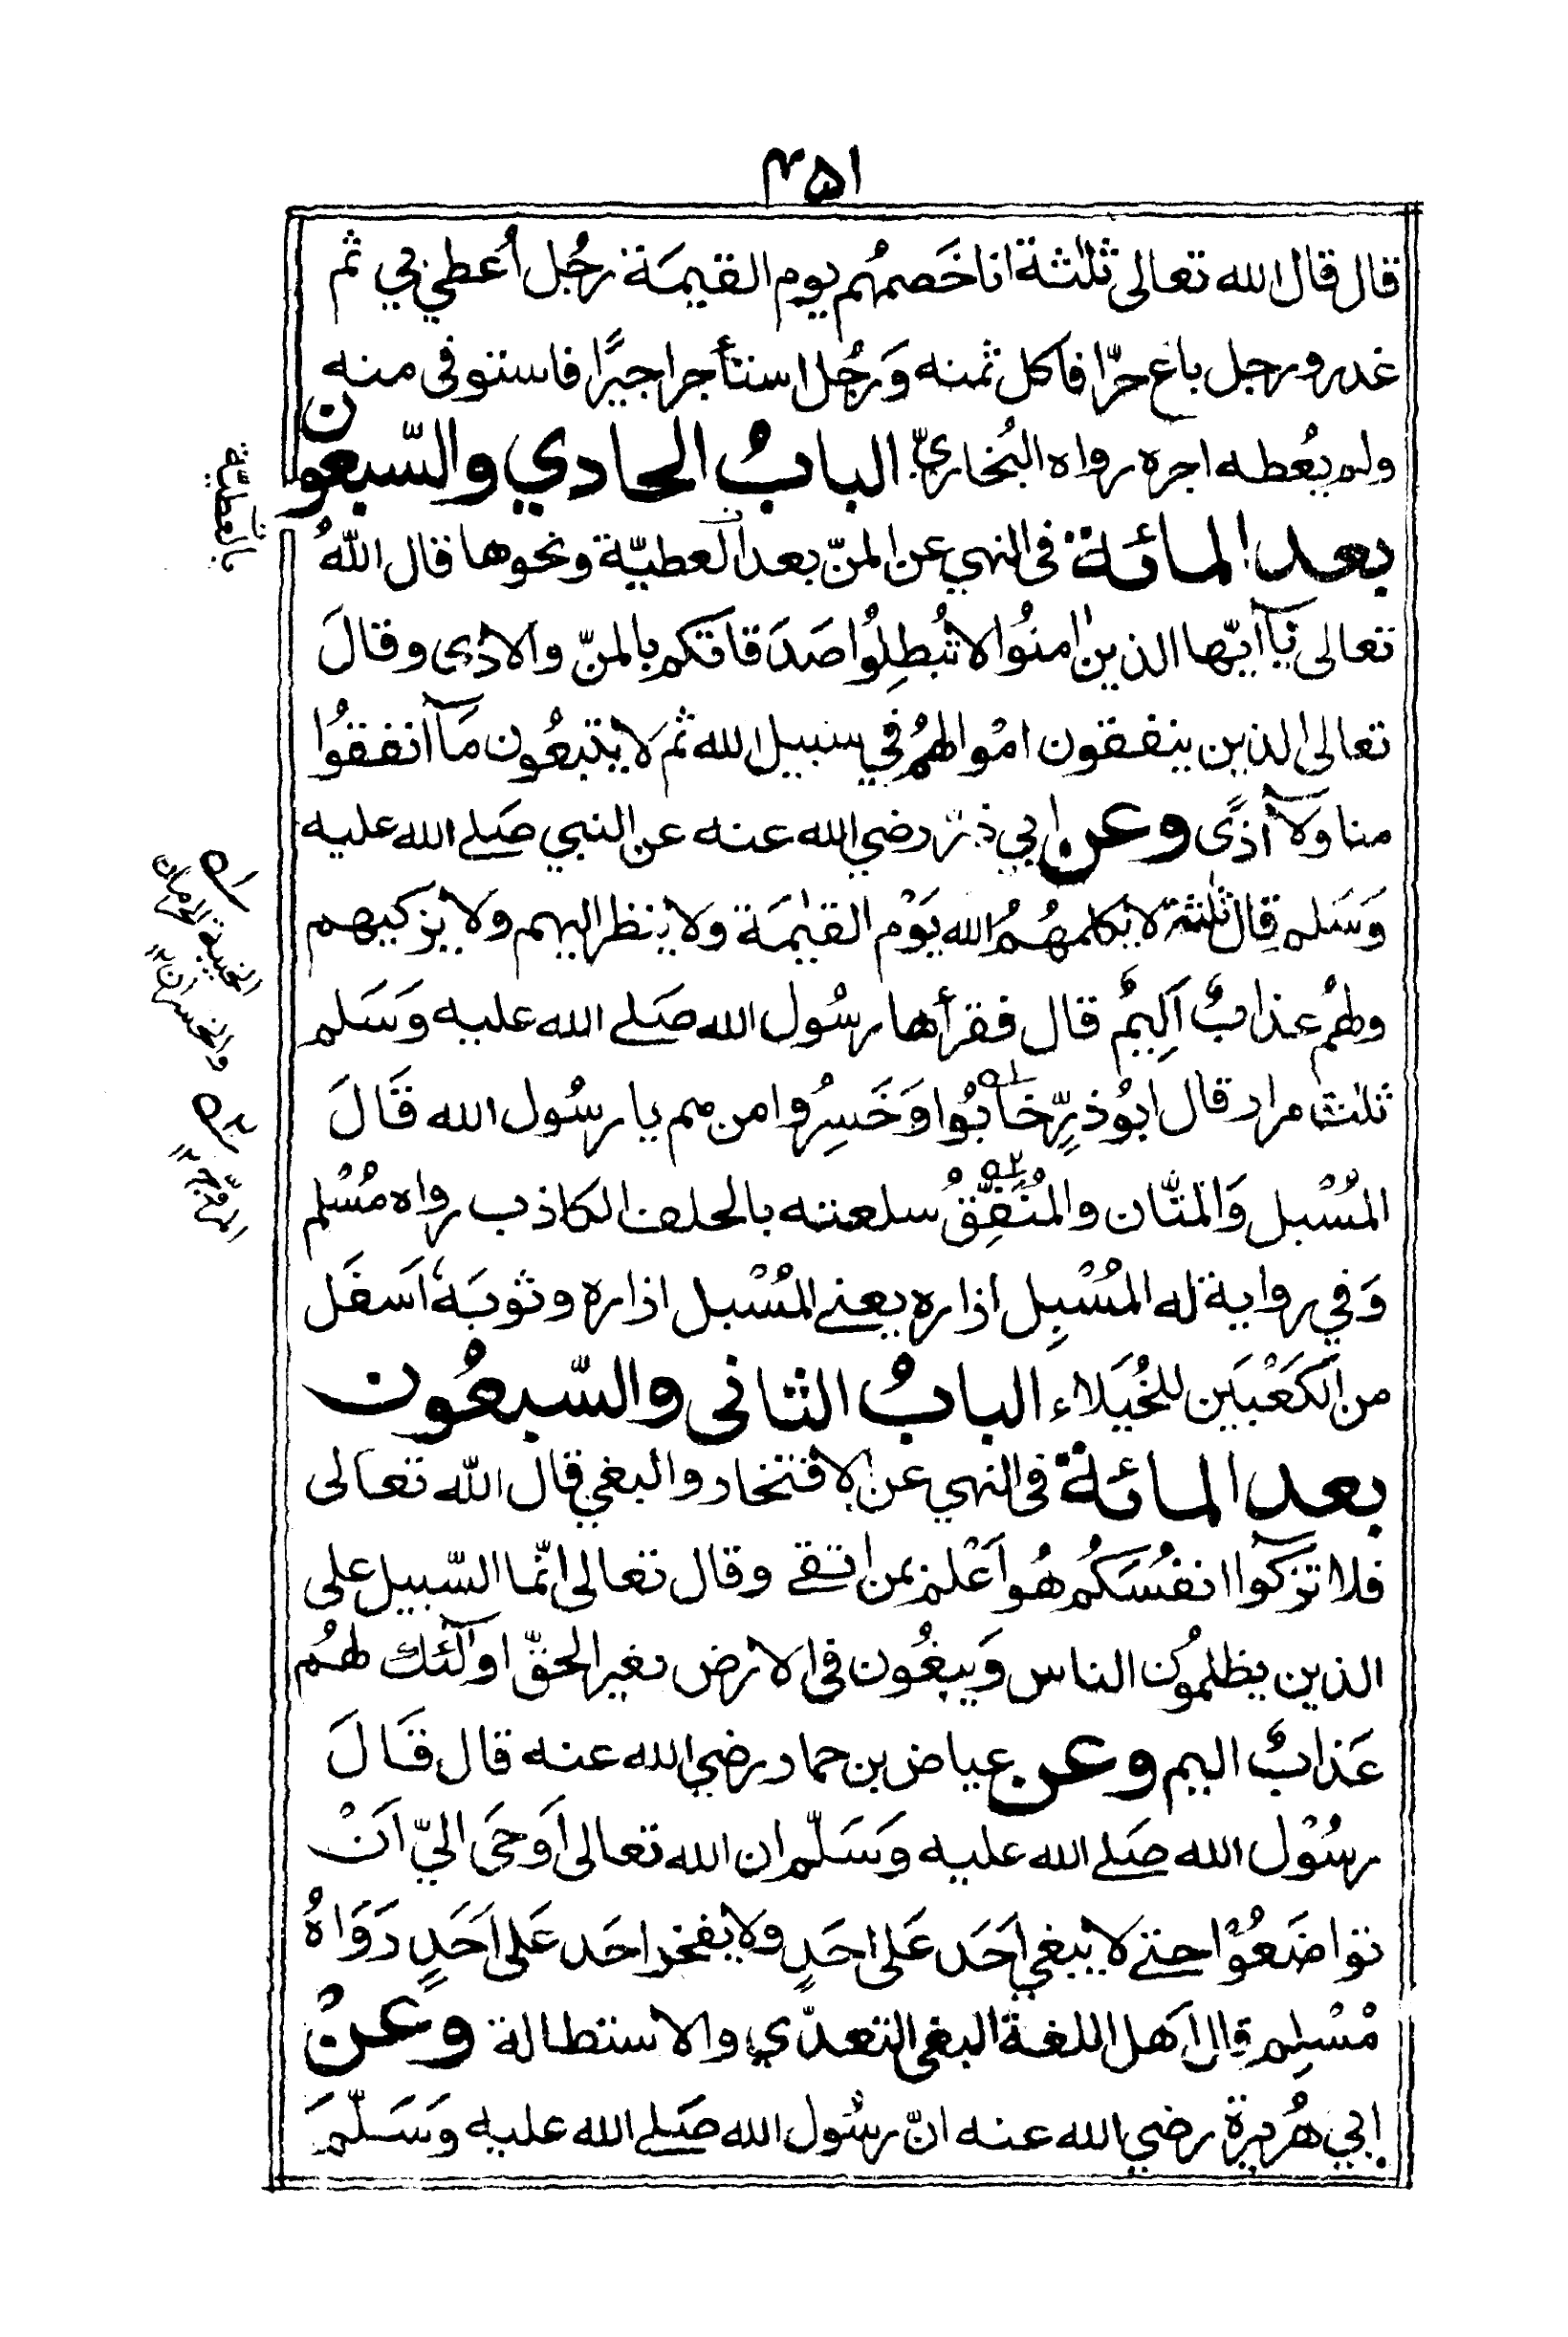 ۴۵۱
قال قال الله تعالى ثلثة انا خَصمهُم يوم القيمَة رجُل اُعطي بي ثم
غدر ورجل باع حرّا فاكل ثمنه وَرجُل استأجر اجيرًا فاستوفى منه
ولم يُعطه اجره رواه البُخاريّ. البابُ الحادي والسّبعون
بعد المائة فى النهي عن المنّ بعد العطيّة ونحوها قال اللهُ
تعالى يٓاَ ايّها الذين اٰمنُوا لا تُبطِلُوا صَدَقاتكم بالمنّ والاذى وقالَ
تعالى الذين ينفقون امْوالهُمْ في سبيل الله ثم لَا يتبعُون مَآ انفقوُا
منا ولآ أذًى وعن ابي ذرّ رضي الله عنه عن النبي صَلے الله عليه
وَسَلم قال ثلثة لا يكلمهُمُ الله يَوْم القيٰمَة ولا ينظر اليهم ولا يزكيهم
ولهُم عذابٌ اَلِيمٌ قال فقرأها رسُول الله صَلے الله عليه وَسَلم
ثلٰث مرار قال ابوُ ذرٍّ خَابُوا وَخَسِرُوا من هم يا رسُول الله قَالَ
المُسْبل وَالمَنَّان والمُنَفِّقُ سلعته بالحلف الكاذب رواه مُسْلم
وَفي رواية له المُسْبِل ازاره يعنے المُسْبل ازاره وثوبَهٗ اَسفَل
من الكَعْبَين للخُيَلاء البابُ الثانى والسّبعُون
بعد المائة فى النهي عن الافتخار والبغي قال الله تعَالى
فلا تزكوآ انفُسَكُم هُو اَعْلم بمن اتقے وقال تعالى انّما السّبيل على
الذين يظلموُن الناس وَيبغُون فى الارض بغير الحقّ اولٓئك لهُم
عَذابٌ اليم وعن عياض بن حمار رضي الله عنه قال قَالَ
رسُوْل الله صَلے الله عليه وَسَلّم ان الله تعالى اَوحَى اليّ اَنْ
تواضَعُوْا حتے لا يبغي اَحَد عَلى احَدٍ ولا يفخر احَد عَلى اَحَدٍ رَوَاهُ
مُسْلِم قال اَهل اللغة البغى التعدّي والاستطالة وعنْ
ابي هُريرة رضي الله عنه انّ رسُول الله صَلے الله عليه وَسَلّمَ
بالعطيّة
ا؎
الخيبة الحرمان
والخسران ١٢
٢؎
المروّج ١٢